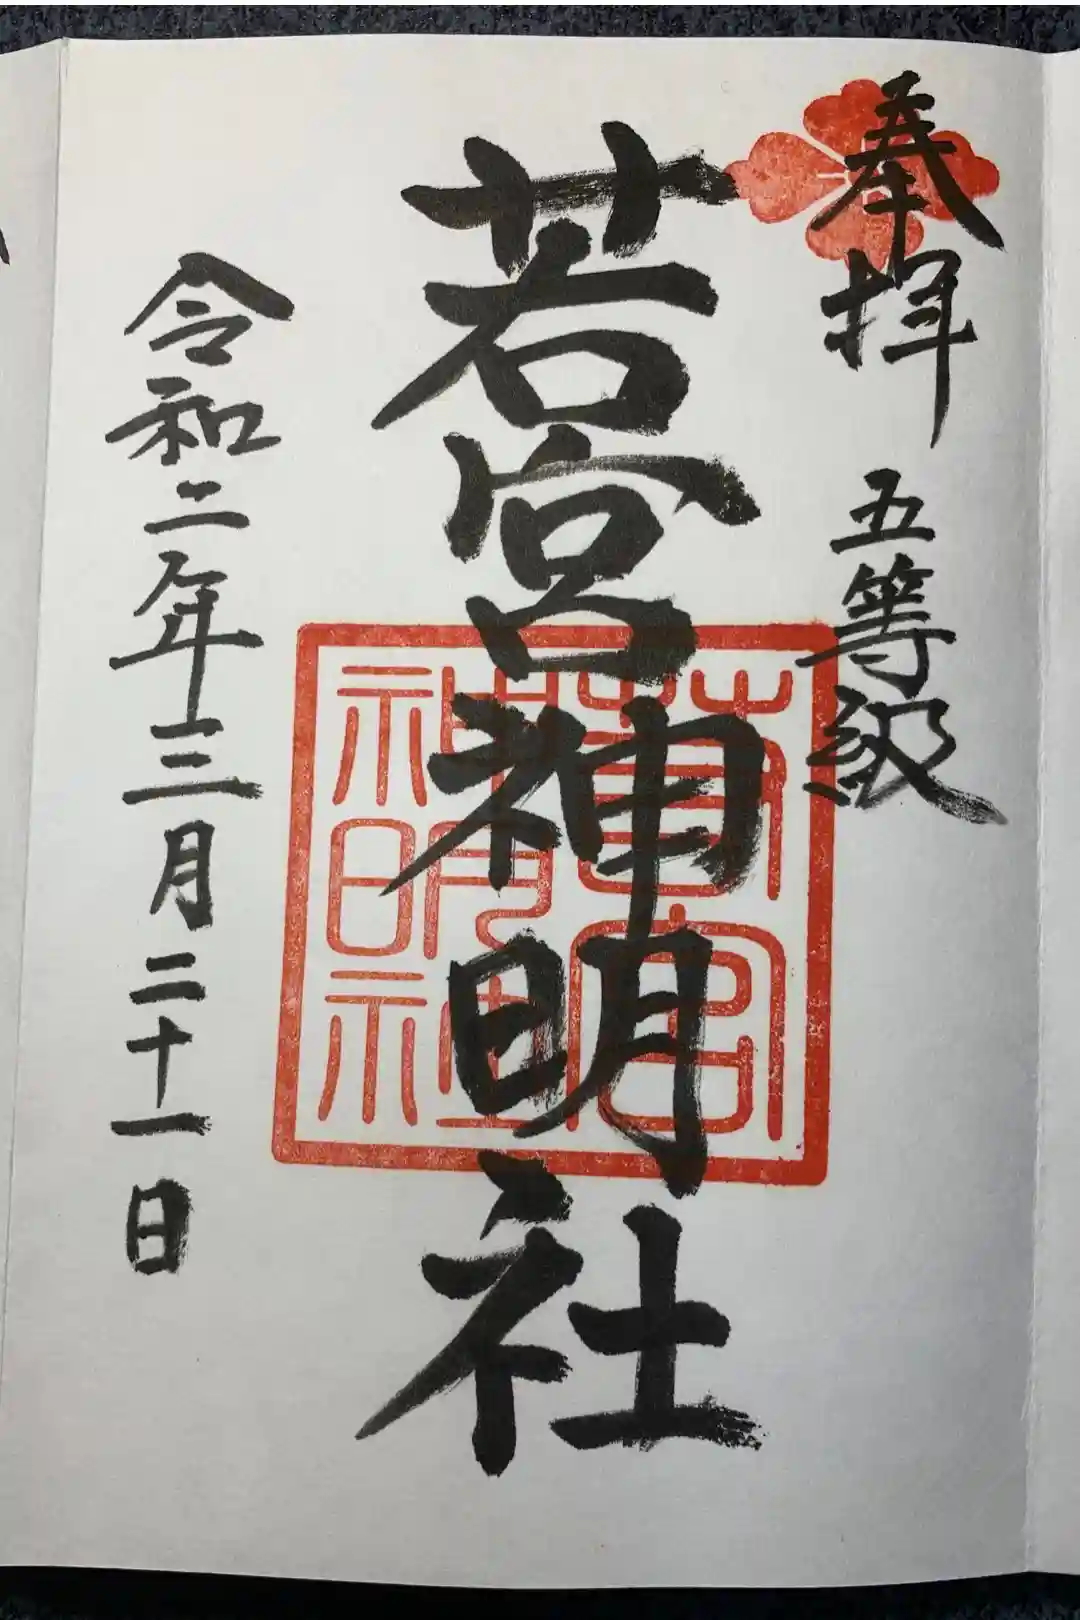 奉拝
五等級
若宮神明社
若宮
神明社
令和二年三月二十一日